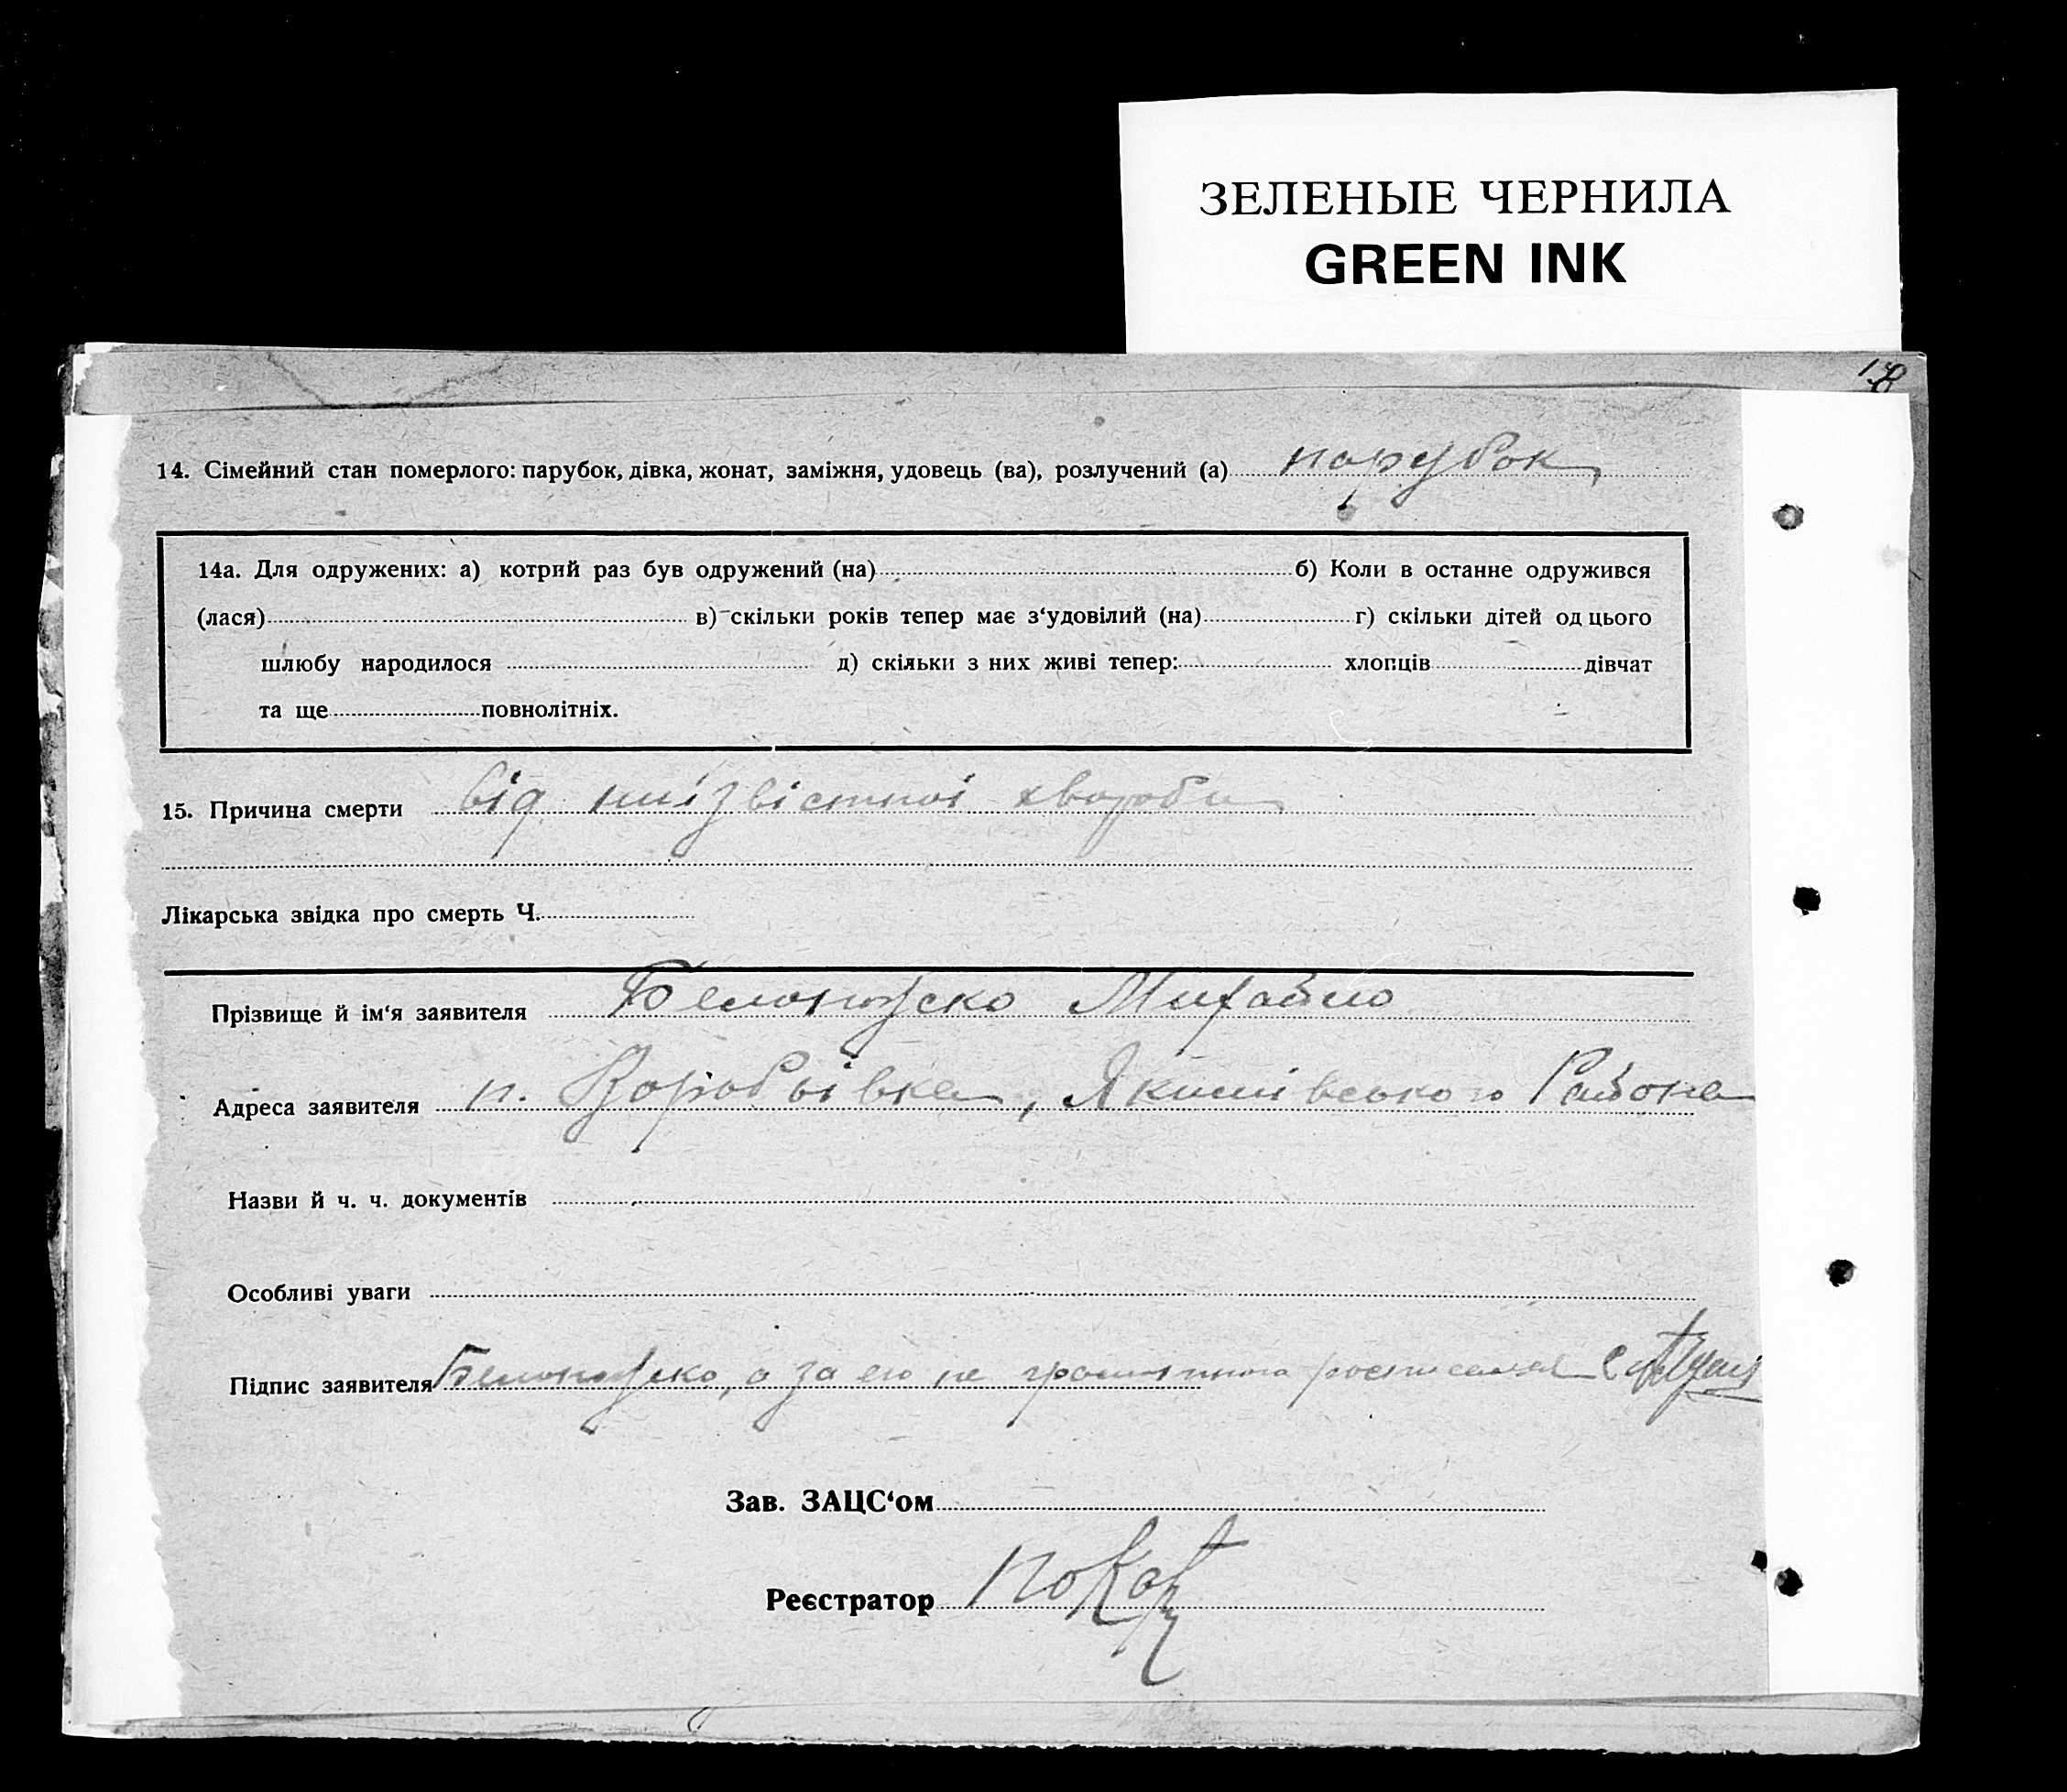 ЗЕЛЕНЫЕ ЧЕРНИЛА
GREEN INK
18
14. Сімейний стан померлого: парубок, дівка, жонат, заміжня, удовець (ва), розлучений (а) парубок
14а. Для одружених: а) котрий раз був одружений (на) б) Коли в останне одружився
(лася) в) скільки років тепер має з‘удовілий (на) г) скільки дітей од цього
шлюбу народилося д) скільки з них живі тепер: хлопців дівчат
та ще повнолітніх.
15. Причина смерти від ниізвістної хвороби
Лікарська звідка про смерть Ч.
Прізвище й ім‘я заявителя Белоножско Михайло
Адреса заявителя п. Воробьівка, Якимівського Района
Назви й ч. ч. документів
Особливі уваги
Підпис заявителя Белоножско, а за его не грамотного росписался
Зав. ЗАЦС‘ом
Реєстратор